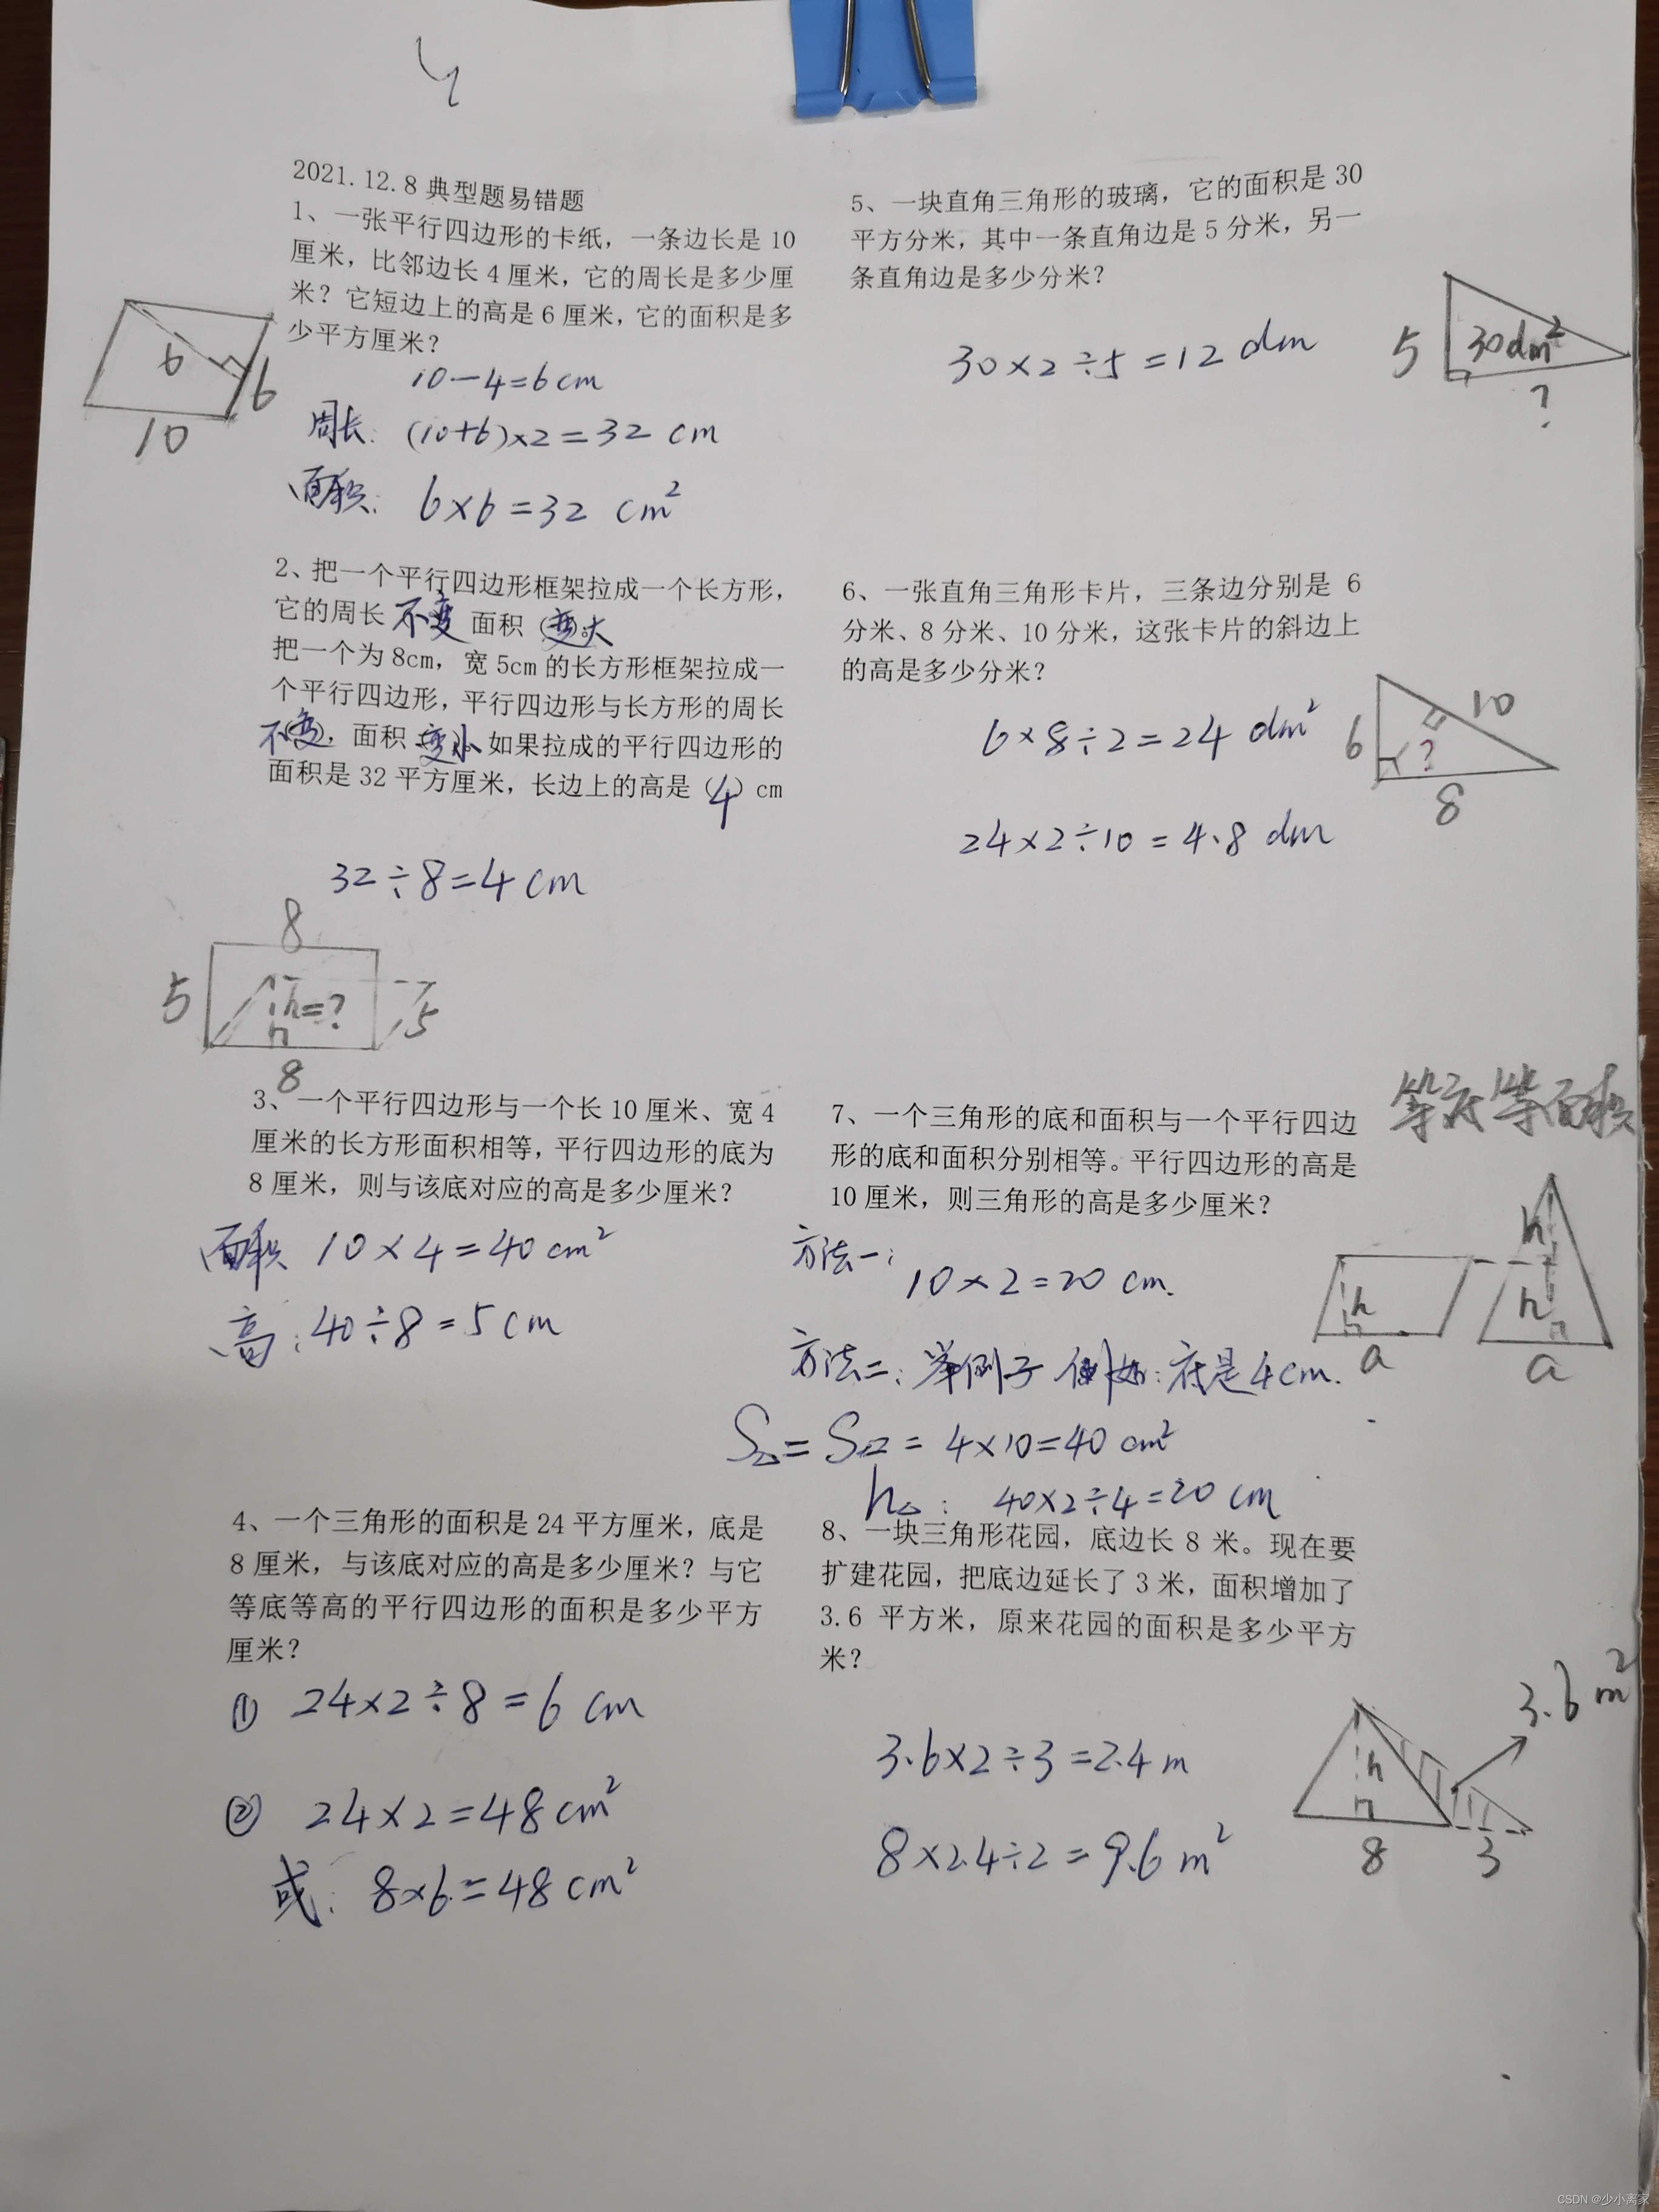 2021.12.8典型题易错题
1、一张平行四边形的卡纸，一条边长是10
厘米，比邻边长4厘米，它的周长是多少厘
米？它短边上的高是6厘米，它的面积是多
少平方厘米？
6
6
10
10-4=6cm
周长：(10+6)×2=32 cm
面积：6×6=32 cm²
2、把一个平行四边形框架拉成一个长方形，
它的周长 不变 面积（变大
把一个为8cm，宽5cm的长方形框架拉成一
个平行四边形，平行四边形与长方形的周长
不变，面积 变小 如果拉成的平行四边形的
面积是32平方厘米，长边上的高是（4）cm
32÷8=4cm
8
5
h=?
5
8
3、一个平行四边形与一个长10厘米、宽4
厘米的长方形面积相等，平行四边形的底为
8厘米，则与该底对应的高是多少厘米？
面积 10×4=40cm²
高：40÷8=5cm
4、一个三角形的面积是24平方厘米，底是
8厘米，与该底对应的高是多少厘米？与它
等底等高的平行四边形的面积是多少平方
厘米？
① 24×2÷8=6 cm
② 24×2=48cm²
或：8×6=48cm²
5、一块直角三角形的玻璃，它的面积是30
平方分米，其中一条直角边是5分米，另一
条直角边是多少分米？
30×2÷5=12 dm
5
30dm²
?
6、一张直角三角形卡片，三条边分别是 6
分米、8分米、10分米，这张卡片的斜边上
的高是多少分米？
6×8÷2=24 dm²
24×2÷10=4.8 dm
10
6
?
8
7、一个三角形的底和面积与一个平行四边
形的底和面积分别相等。平行四边形的高是
10厘米，则三角形的高是多少厘米？
等底等面积
方法一：
10×2=20 cm.
方法二：举例子 例如：底是4cm.
S△=S▱=4×10=40 cm²
h△：40×2÷4=20 cm
h
h
h
a
a
8、一块三角形花园，底边长 8 米。现在要
扩建花园，把底边延长了3米，面积增加了
3.6 平方米，原来花园的面积是多少平方
米？
3.6×2÷3=2.4m
8×2.4÷2=9.6m²
3.6m²
h
8
3
CSDN @少小离家